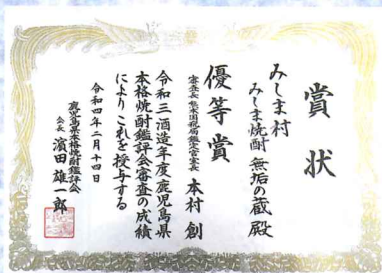 賞状
みしま村
みしま焼酎 無垢の蔵 殿
優等賞
審査長 熊本国税局鑑定官室長 本村 創
令和三酒造年度鹿児島県
本格焼酎鑑評会審査の成績
によりこれを授与する
令和四年二月十四日
鹿児島県本格焼酎鑑評会
会長 濵田雄一郎